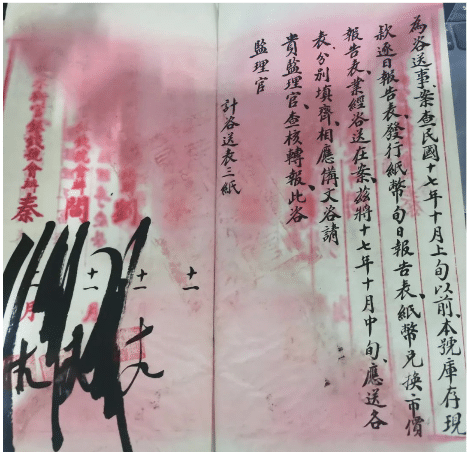 為咨送事案查民國十七年十月上旬以前本號庫存現
款逐日報告表發行紙幣旬日報告表紙幣兌換市價
報告表業經咨送在案茲將十七年十月中旬應送各
表分別填齊相應備文咨請
貴監理官查核轉報此咨
監理官
計咨送表三紙
劉
十一
十九
十一
月
官銀錢號會辦秦
月